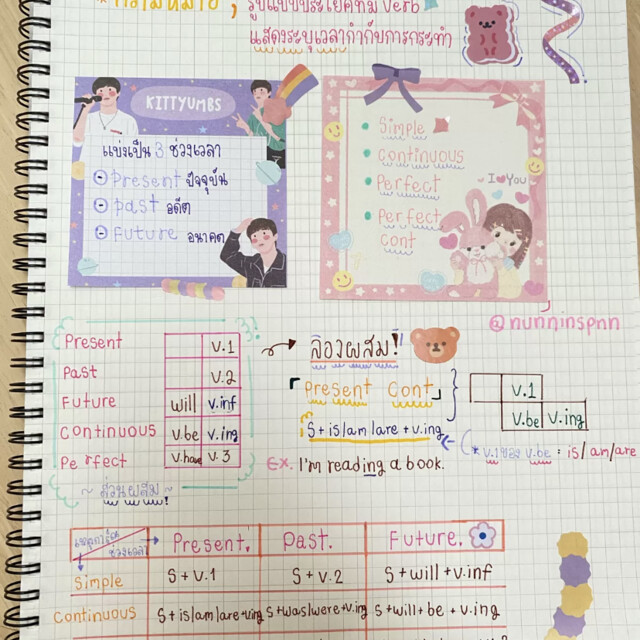 รูปแบบประโยคที่มี Verb
แสดงระบุเวลากำกับการกระทำ
KITTYUMBS
แบ่งเป็น 3 ช่วงเวลา
Present ปัจจุบัน
past อดีต
Future อนาคต
Simple
continuous
Perfect
perfect
cont
I YOU
@nunninspnn
Present V.1
Past V.2
Future will v.inf
continuous v.be v.ing
Perfect v.have v.3
~ ส่วนผสม! ~
3!
ลองผสม!
「Present Cont」
S+is/am/are+v.ing
Ex. I'm reading a book.
V.1
V.be V.ing
(* v.1ของ v.be : is/am/are
เหตุการณ์ ช่วงเวลา Present. Past. Future.
Simple S+v.1 S+v.2 S+will+v.inf
continuous S+is/am/are+v.ing S+was/were+v.ing S+will+be+v.ing